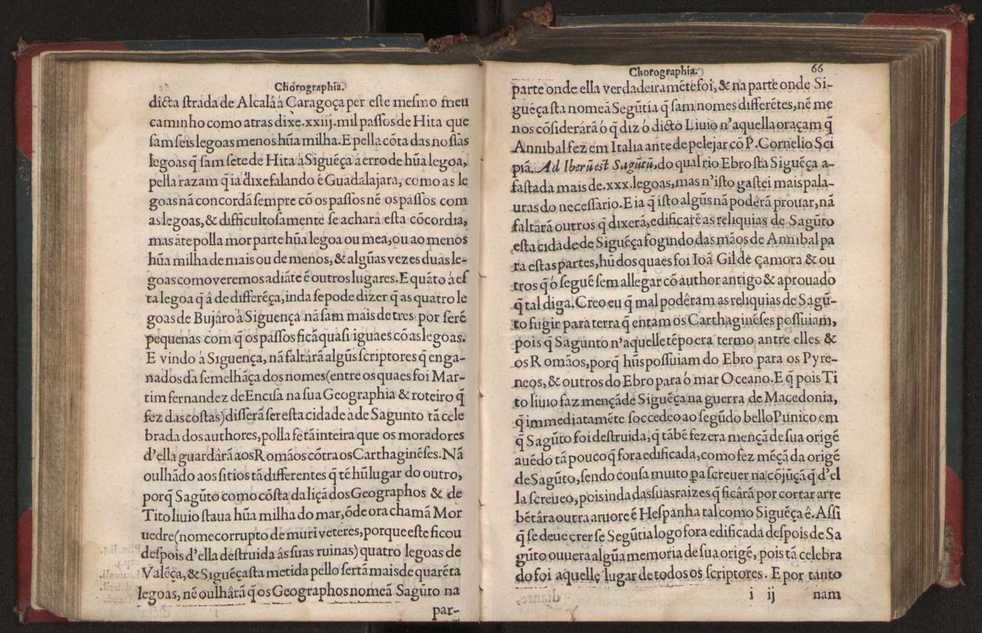 Chorographia.
dicta strada de Alcalâ à Caragoça per este mesmo meu
caminho como atras dixe.xxiij.mil passos de Hita que
sam seis legoas menos hũa milha. E pella cõta das nossas
legoas q̃ sam sete de Hita à Siguẽça à erro de hũa legoa,
pella razam q̃ ia dixe falando ẽ Guadalajara, como as le
goas nã concordã sempre cõ os passos nẽ os passos com
as legoas, & difficultosamente se achará esta cõcordia,
mas âte polla mor parte hũa legoa ou mea, ou ao menos
hũa milha de mais ou de menos, & algũas vezes duas le-
goas como veremos adiãte ẽ outros lugares. E quãto á es
ta legoa q̃ â de differẽça, inda se pode dizer q̃ as quatro le
goas de Bujâro à Siguença nã sam mais de tres por serẽ
pequenas com q̃ os passos ficã quasi iguaes cõ as legoas.
E vindo à Siguença, nã faltarã algũs scriptores q̃ enga-
nados da semelhãça dos nomes (entre os quaes foi Mar-
tim fernandez de Encisa na sua Geographia & roteiro q̃
fez das costas) disserã ser esta cidade à de Sagunto tã cele
brada dos authores, polla fè tã inteira que os moradores
d'ella guardárã aos Romãos cõtra os Carthaginẽses. Nã
oulhãdo aos sitios tã differentes q̃ tẽ hũ lugar do outro,
porq̃ Sagũto como cõsta da liçã dos Geographos & de
Tito liuio staua hũa milha do mar, õde ora chamã Mor
uedre (nome corrupto de muri veteres, porque este ficou
despois d'ella destruida ás suas ruinas) quatro legoas de
Valẽça, & Siguẽça sta metida pello sertã mais de quarẽta
legoas, nẽ oulhârã q̃ os Geographos nomeã Sagũto na
par-
Chorographia. 66
parte onde ella verdadeiramẽte foi, & na parte onde Si-
guẽça sta nomeã Segũtia q̃ sam nomes differẽtes, nẽ me
nos cõsiderárã ó q̃ diz ó dicto Liuio n'aquella oraçam q̃
Annibal fez em Italia ante de pelejar cõ P. Cornelio Sci
piã. Ad Iberũ est Sagũtũ, do qual rio Ebro sta Siguẽça a-
fastada mais de.xxx.legoas, mas n'isto gastei mais pala-
uras do necessario. E ia q̃ isto algũs nã poderã prouar, nã
faltarã outros q̃ dixerã, edificarẽ as reliquias de Sagũto
esta cidade de Siguẽça fogundo das mãos de Annibal pa
ra estas partes, hũ dos quaes foi Ioã Gil de çamora & ou
tros q̃ ò seguẽ sem allegar cõ author antigo & aprouado
q̃ tal diga. Creo eu q̃ mal podèram as reliquias de Sagũ-
to fugir para terra q̃ entam os Carthaginẽses possuiam,
pois q̃ Sagunto n'aquelle tẽpo era termo antre elles &
os Romãos, porq̃ hũs possuiam do Ebro para os Pyre-
neos, & outros do Ebro para ò mar Oceano. E q̃ pois Ti
to liuio faz mençã de Siguẽça na guerra de Macedonia,
q̃ immediatamẽte soccedeo ao segũdo bello Punico em
q̃ Sagũto foi destruida; q̃ tãbẽ fezera mençã de sua origẽ
auẽdo tã pouco q̃ fora edificada, como fez mẽçã da origẽ
de Sagũto, sendo cousa muito pa screuer na cõjũçã q̃ d'el
la screueo, pois inda das suas raizes q̃ ficárã por cortar arre
bẽtára outra aruore ẽ Hespanha tal como Siguẽça ê. Assi
q̃ se deue crer se Segũtia logo fora edificada despois de Sa
gũto ouuera algũa memoria de sua origẽ, pois tã celebra
do foi aquelle lugar de todos os scriptores. E por tanto
i ij nam